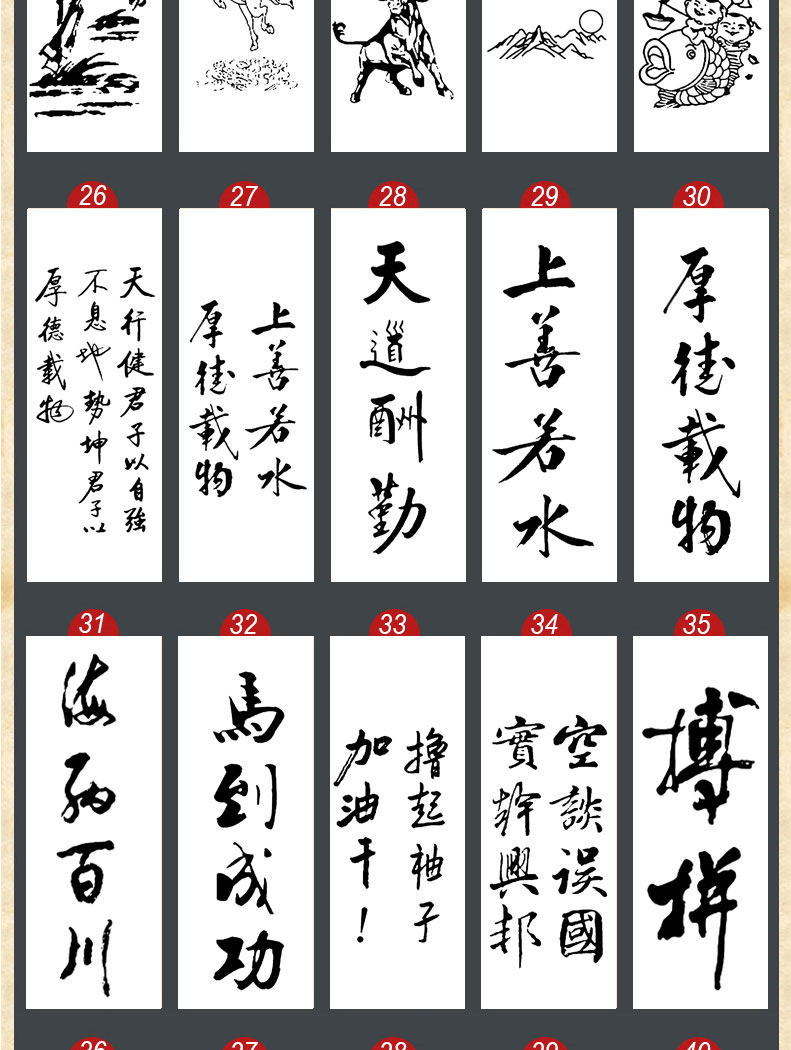 26
27
28
29
30
天行健君子以自強
不息地勢坤君子以
厚德載物
上善若水
厚德載物
天道酬勤
上善若水
厚德載物
31
32
33
34
35
海納百川
馬到成功
撸起袖子
加油干！
空談误國
實幹興邦
搏拼
36
37
38
39
40